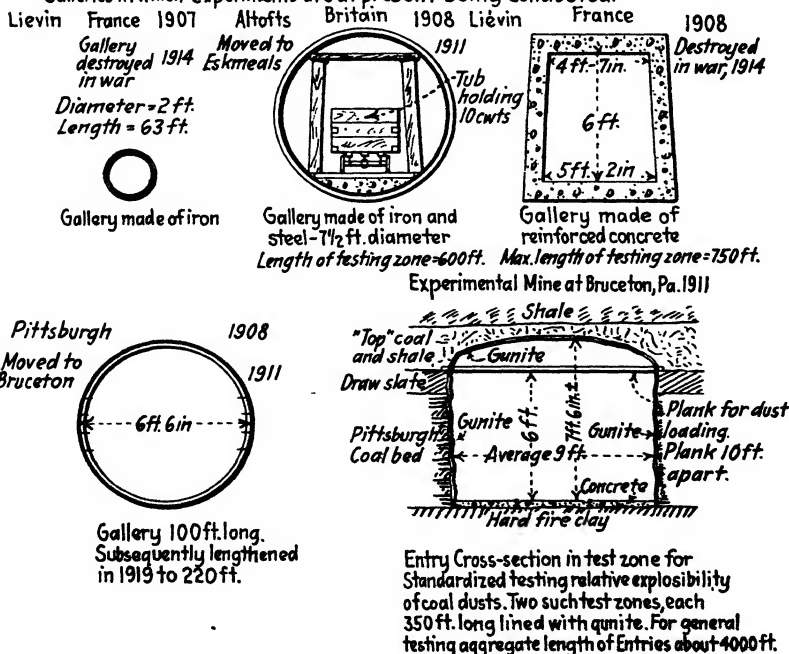 Galleries in which experiments are at present being conducted.
Lievin France 1907
Gallery
destroyed 1914
in war
Diameter = 2 ft.
Length = 63 ft.
Gallery made of iron
Altofts Britain 1908
Moved to 1911
Eskmeals
Tub
holding
10 cwts
Gallery made of iron and
steel-7½ ft. diameter
Length of testing zone=600ft.
Liévin France 1908
Destroyed
in war, 1914
4 ft.-7in.
6 ft.
5 ft. 2 in
Gallery made of
reinforced concrete
Max. length of testing zone=750ft.
Pittsburgh 1908
Moved to 1911
Bruceton
6 ft. 6 in
Gallery 100 ft. long.
Subsequently lengthened
in 1919 to 220 ft.
Experimental Mine at Bruceton, Pa. 1911
Shale
"Top" coal
and shale
Gunite
Draw slate
6 ft.
7 ft. 6 in. ±
Pittsburgh
Coal bed
Gunite
Gunite
Average 9 ft.
Plank for dust
loading.
Plank 10 ft.
apart.
Concrete
Hard fire clay
Entry Cross-section in test zone for
Standardized testing relative explosibility
of coal dusts. Two such test zones, each
350 ft. long lined with gunite. For general
testing aggregate length of Entries about 4000 ft.